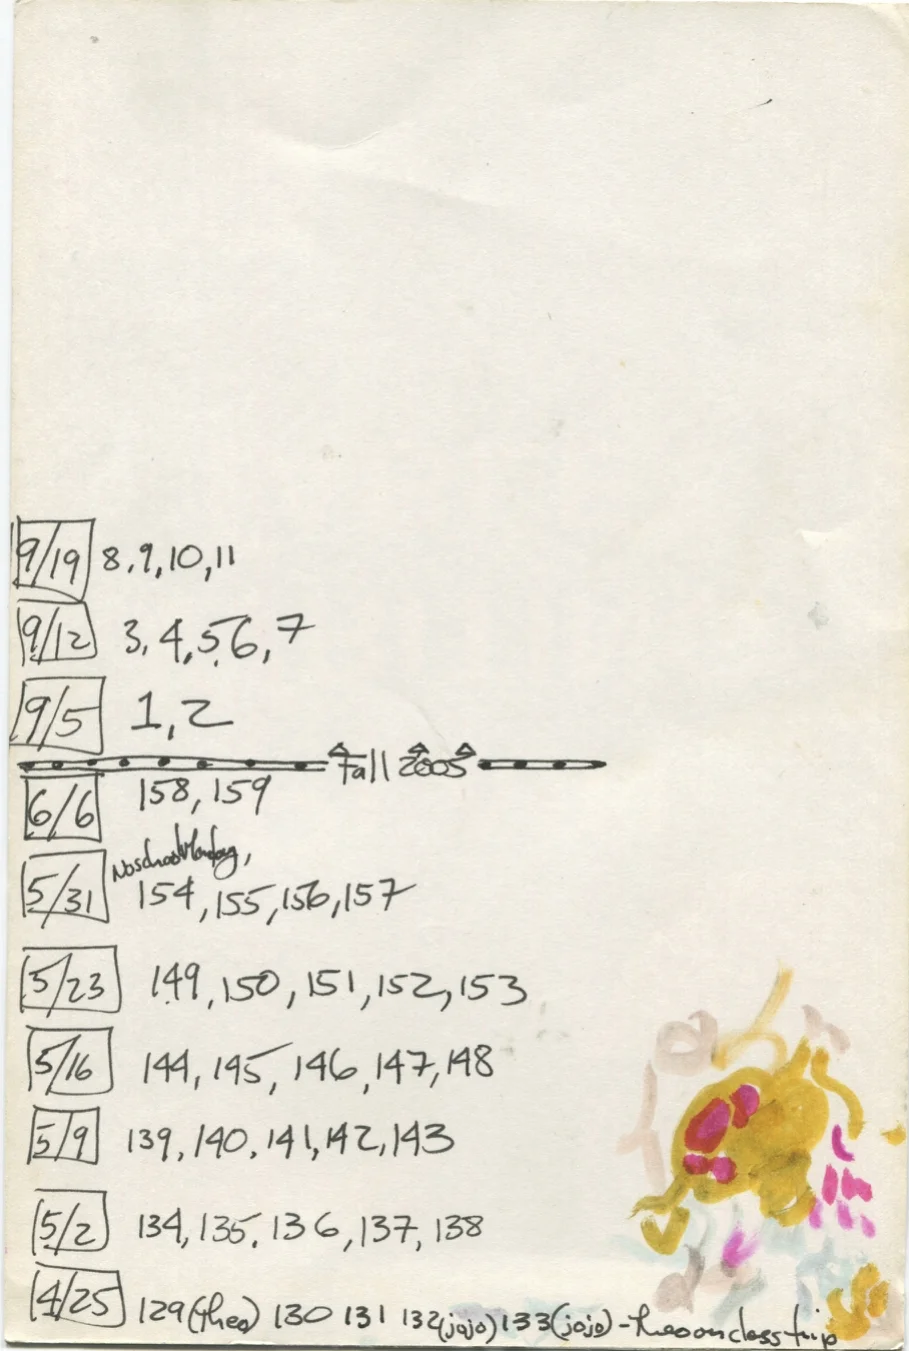 9/19 8, 9, 10, 11
9/12 3, 4, 5, 6, 7
9/5 1, 2
Fall 2005
6/6 158, 159
No school Monday,
5/31 154, 155, 156, 157
5/23 149, 150, 151, 152, 153
5/16 144, 145, 146, 147, 148
5/9 139, 140, 141, 142, 143
5/2 134, 135, 136, 137, 138
4/25 129 (theo) 130 131 132 (jojo) 133 (jojo) - theo on class trip